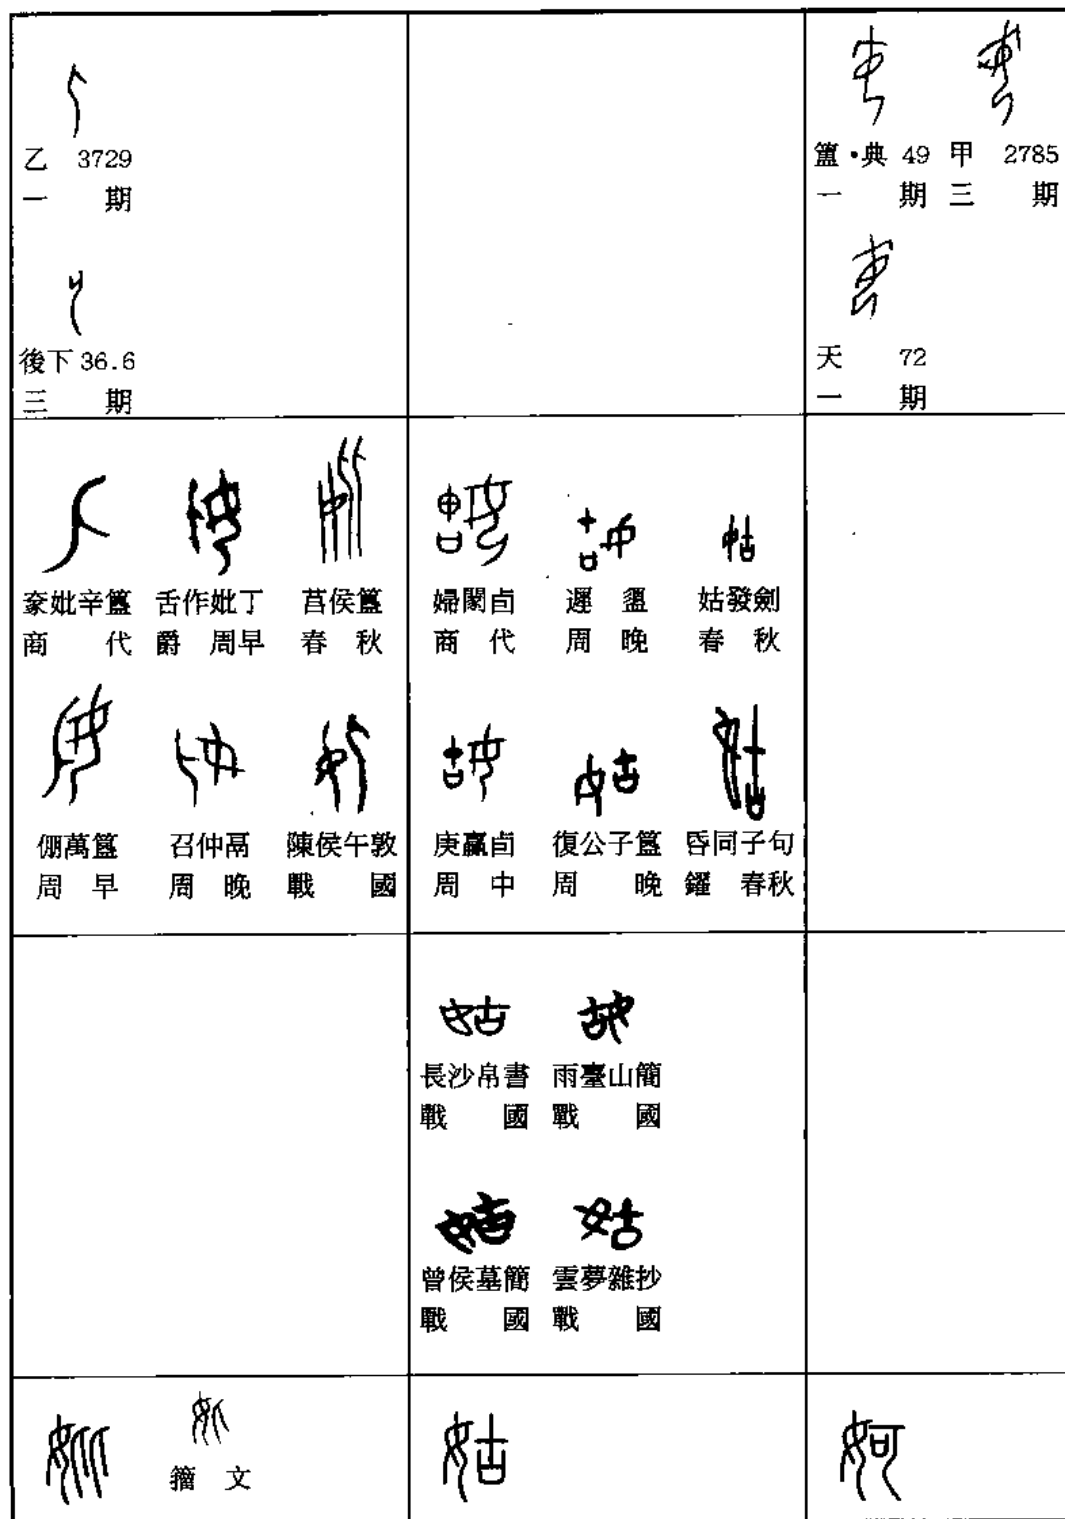 乙 3729
一 期
後下 36.6
三 期
簠·典 49 甲 2785
一 期 三 期
天 72
一 期
妣辛簋 舌作妣丁 莒侯簋
商 代 爵 周早 春 秋
倗萬簋 召仲鬲 陳侯午敦
周 早 周 晚 戰 國
婦闔卣 遲盨 姑發劍
商 代 周 晚 春 秋
庚嬴卣 復公子簋 昏同子句
周 中 周 晚 鑃 春秋
長沙帛書 雨臺山簡
戰 國 戰 國
曾侯墓簡 雲夢雜抄
戰 國 戰 國
妣 籀 文
姑
妸